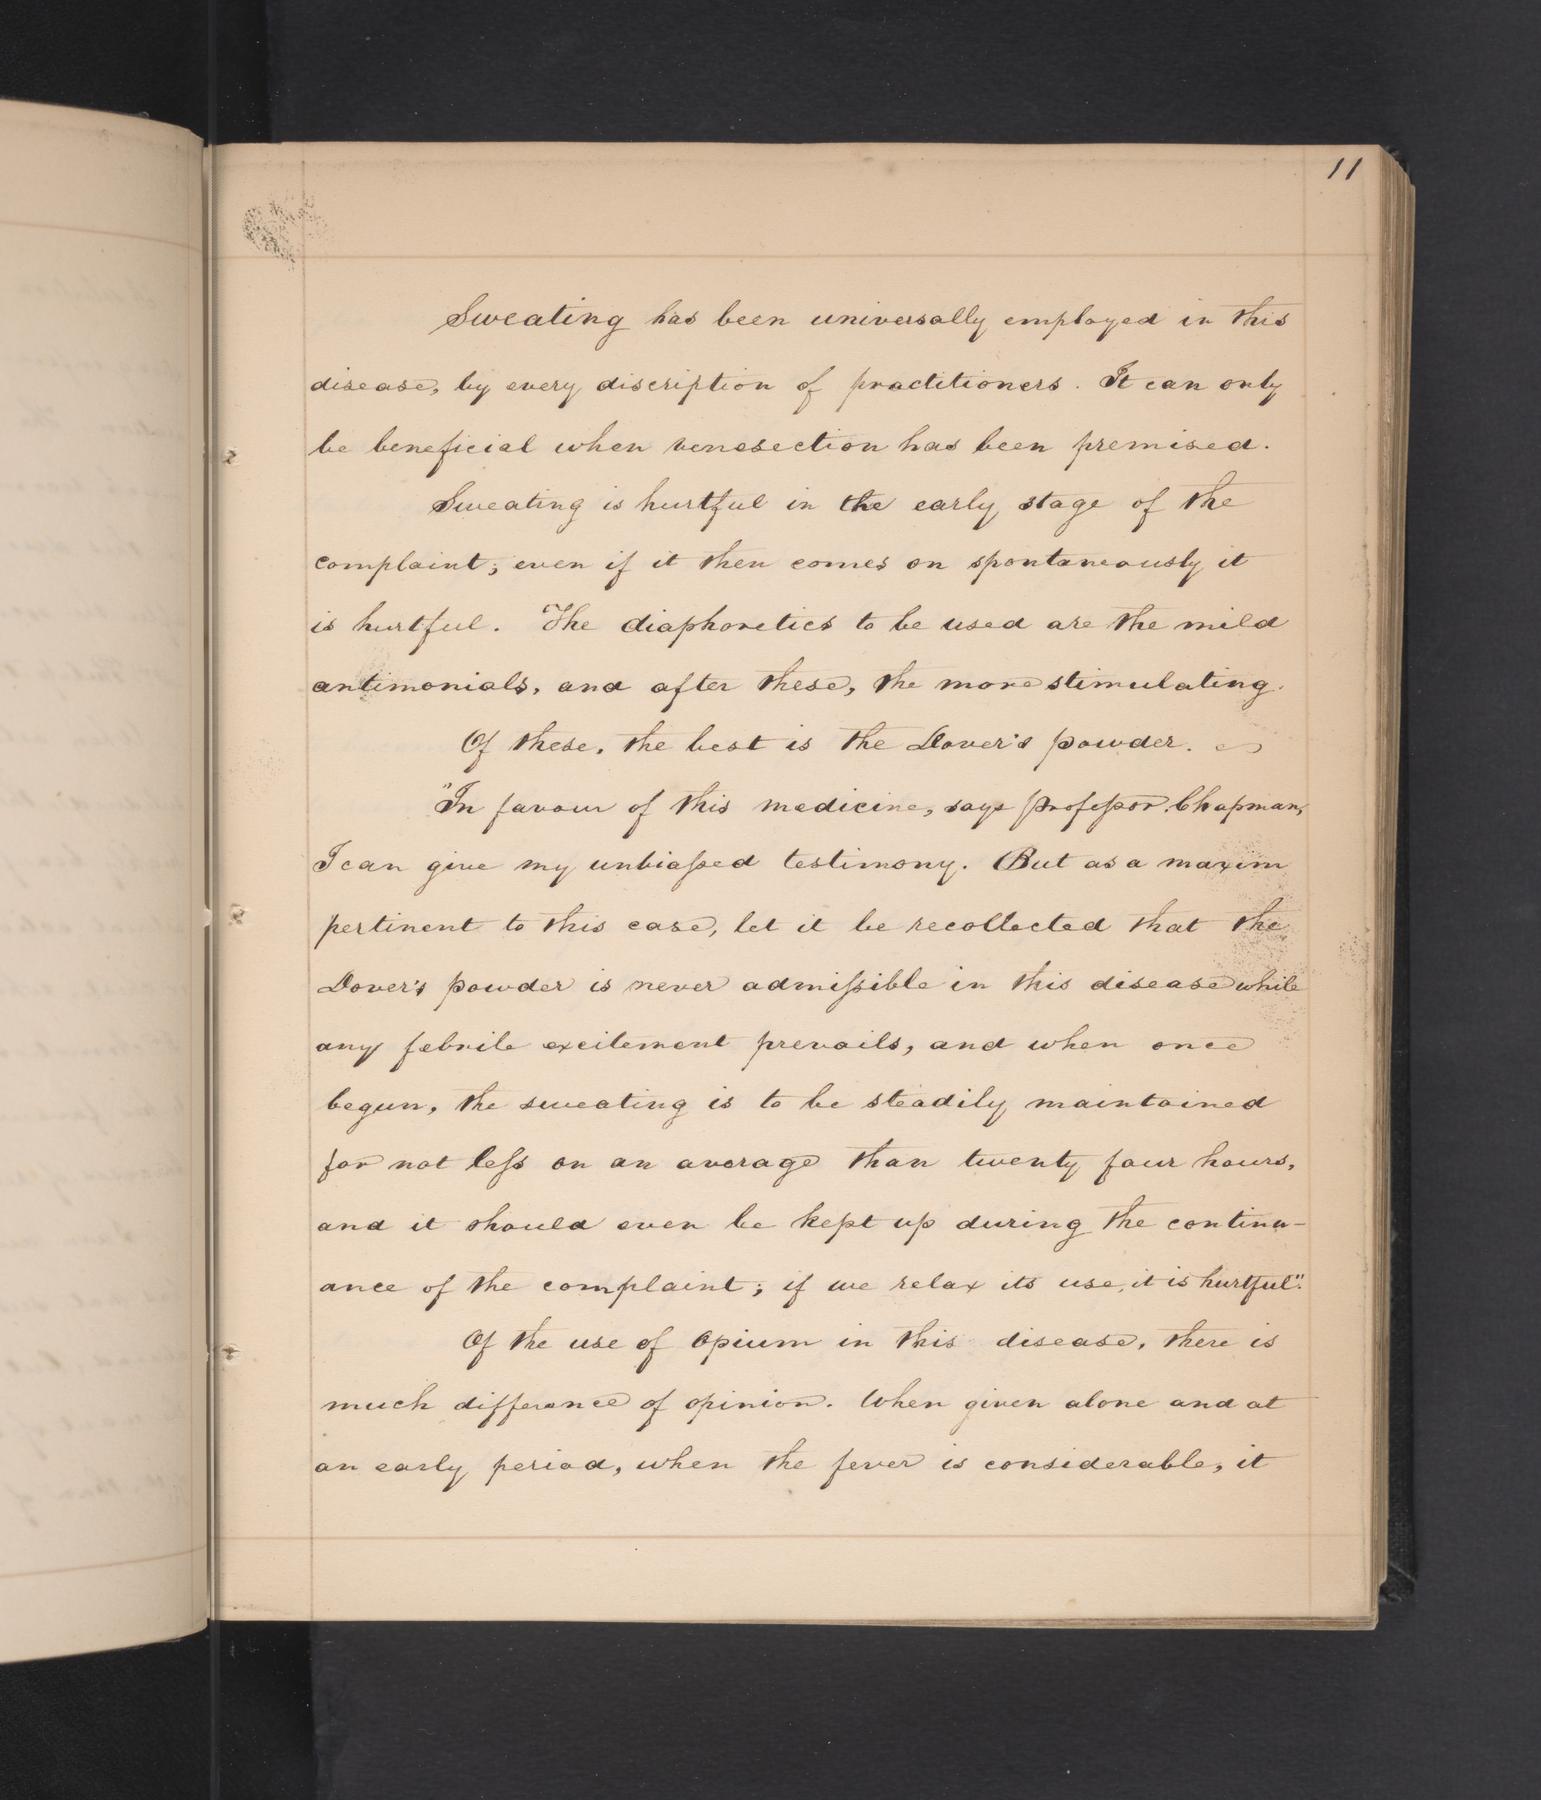 11
Sweating has been universally employed in this
disease, by every discription of practitioners. It can only
be beneficial when venesection has been premised.
Sweating is hurtful in the early stage of the
complaint; even if it then comes on spontaneously it
is hurtful. The diaphoretics to be used are the mild
antimonials, and after these, the more stimulating.
Of these, the best is the Dover's powder.
"In favour of this medicine, says professor Chapman,
I can give my unbiassed testimony. But as a maxim
pertinent to this case, let it be recollected that the
Dover's powder is never admissible in this disease while
any febrile excitement prevails, and when once
begun, the sweating is to be steadily maintained
for not less on an average than twenty four hours,
and it should even be kept up during the continu-
ance of the complaint; if we relax its use, it is hurtful".
Of the use of Opium in this disease, there is
much difference of opinion. When given alone and at
an early period, when the fever is considerable, it